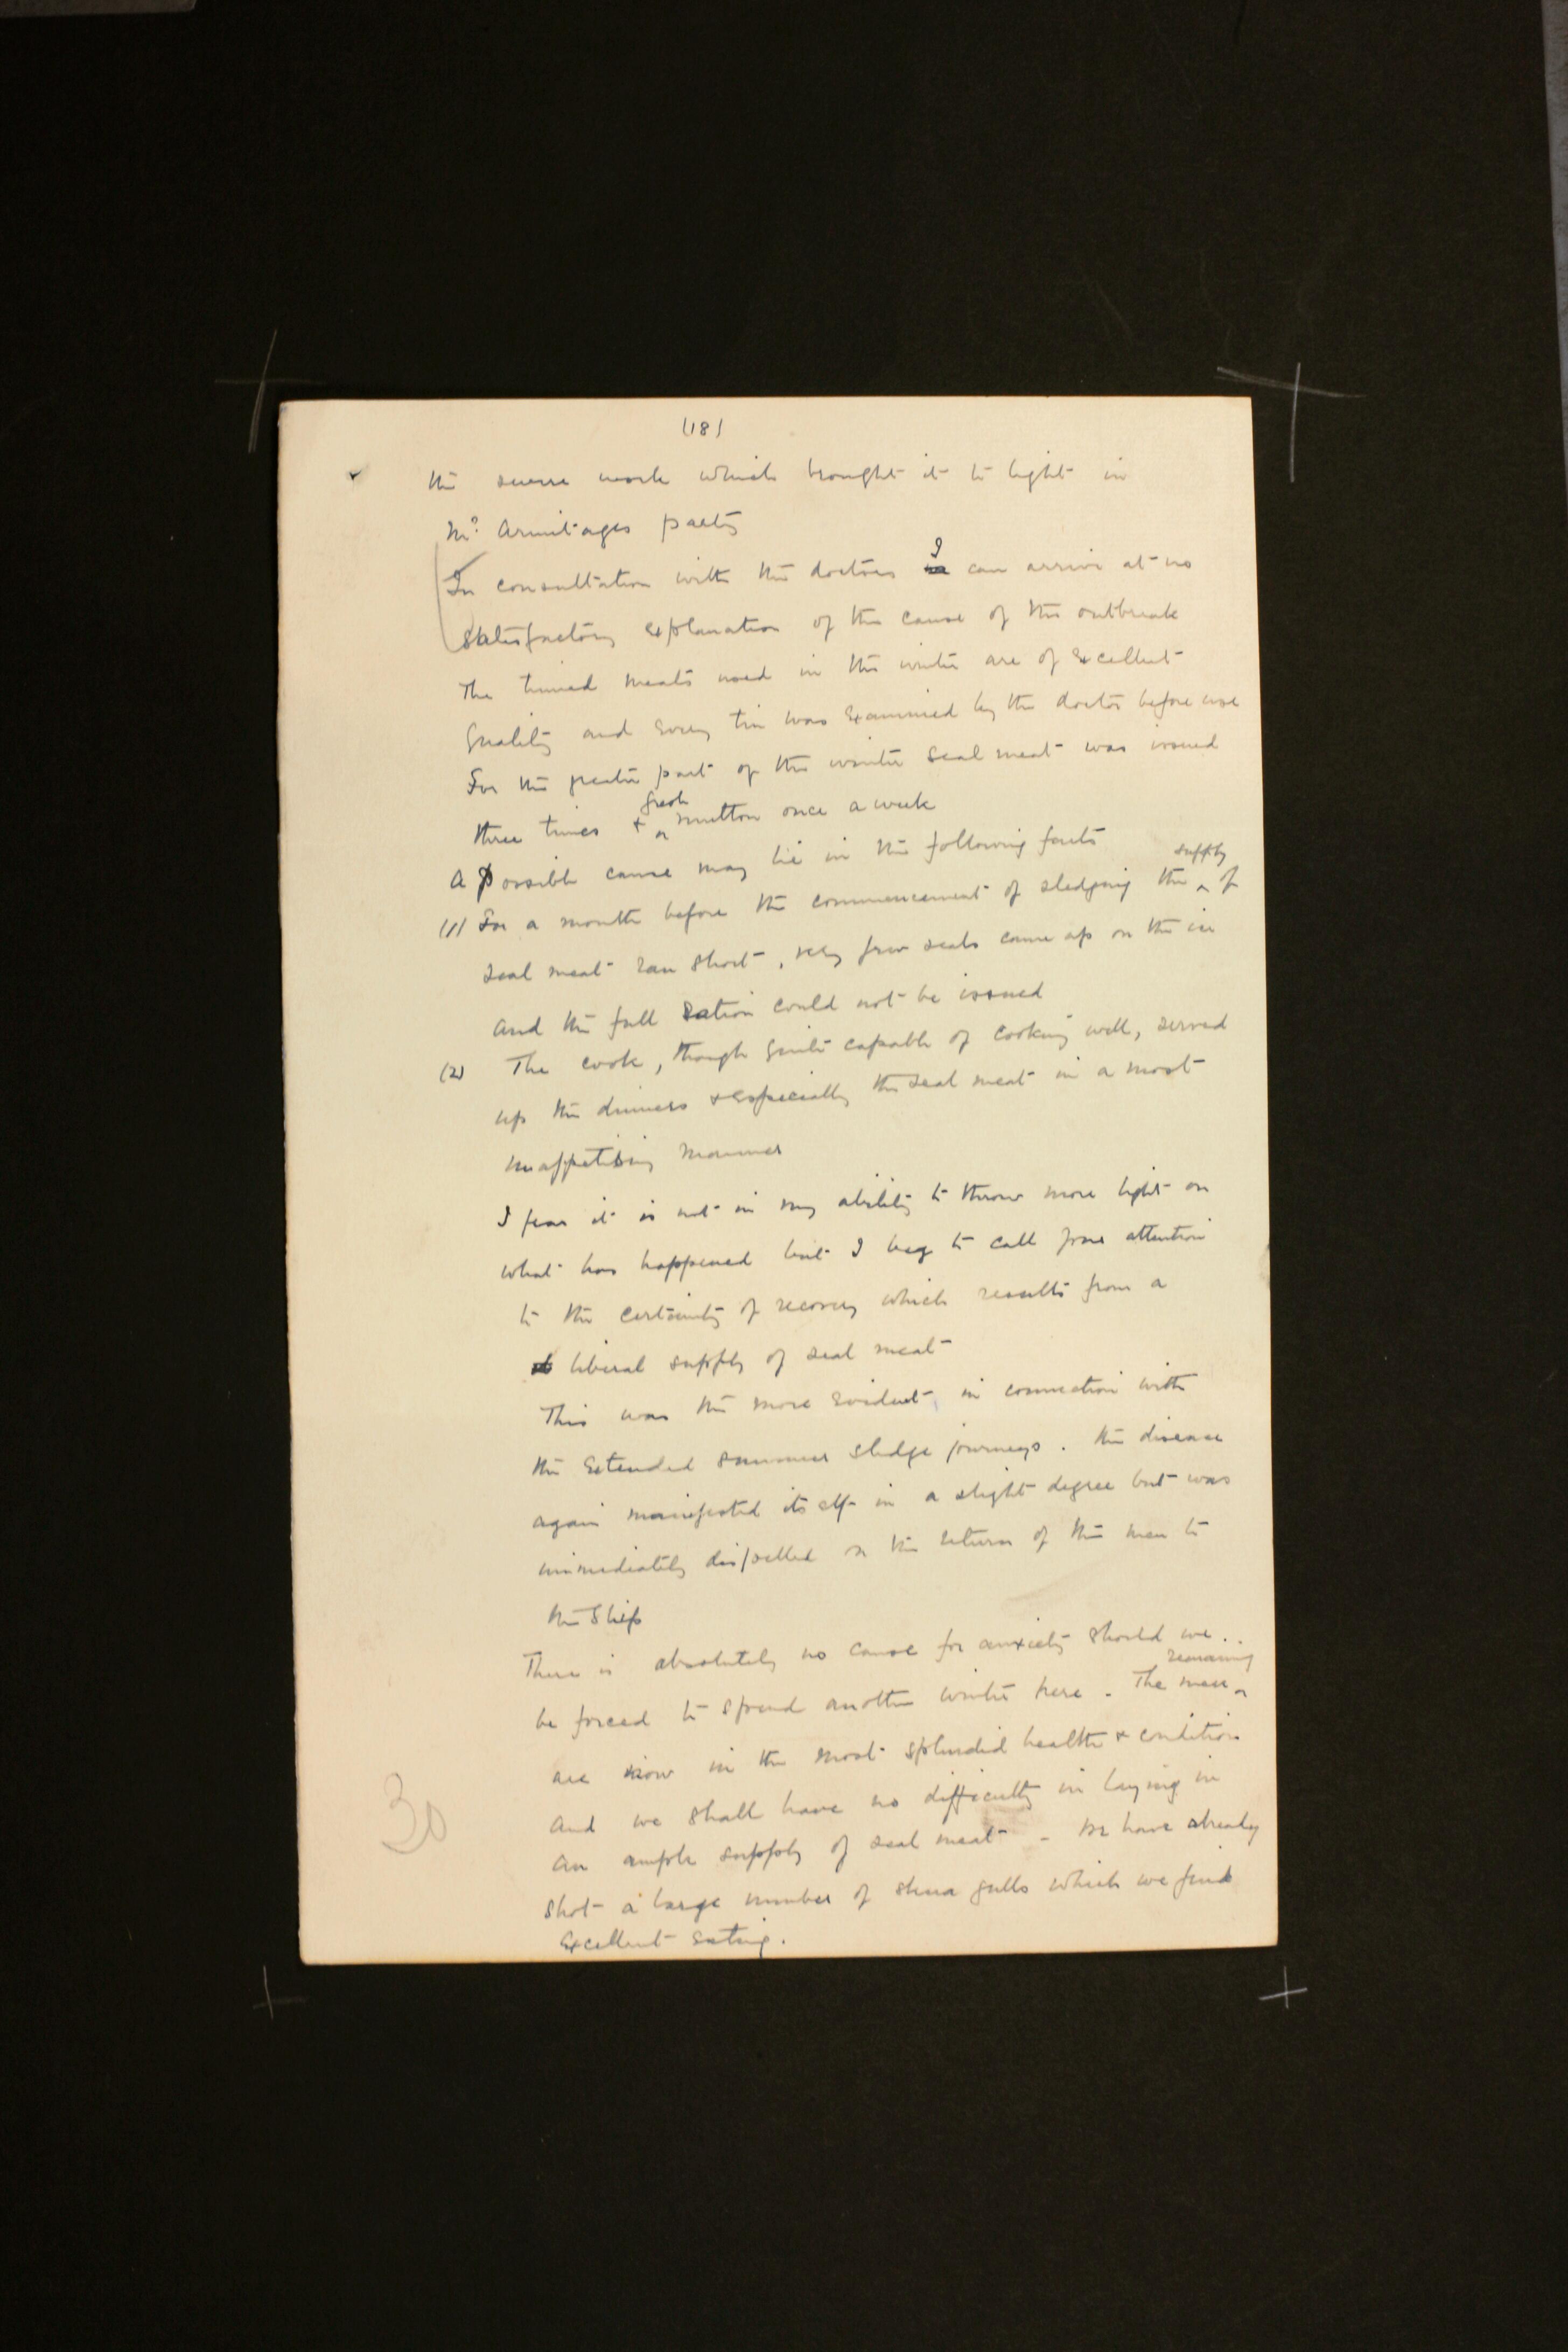 (18)
the severe work which brought it to light in
Mr Armitages party
In consultation with the doctors I can arrive at no
satisfactory explanation of the cause of the outbreak
The tinned meats used in the winter are of excellent
quality and every tin was examined by the doctor before use
For the greater part of the winter seal meat was issued
three times + fresh mutton once a week
A possible cause may lie in the following facts
(1) For a month before the commencement of sledging the supply of
seal meat ran short, very few seals came up on the ice
and the full ration could not be issued
(2) The cook, though quite capable of cooking well, served
up the dinners + especially the seal meat in a most
unappetising manner
I fear it is not in my ability to throw more light on
what has happened but I beg to call your attention
to the certainty of recovery which results from a
liberal supply of seal meat
This was the more evident in connection with
the extended summer sledge journeys. the disease
again manifested itself in a slight degree but was
immediately dispelled on the return of the men to
the Ship
There is absolutely no cause for anxiety should we..
be forced to spend another winter here - The men remaining
are now in the most splendid health + condition
and we shall have no difficulty in laying in
an ample supply of seal meat - we have already
shot a large number of skua gulls which we find
excellent eating.
30